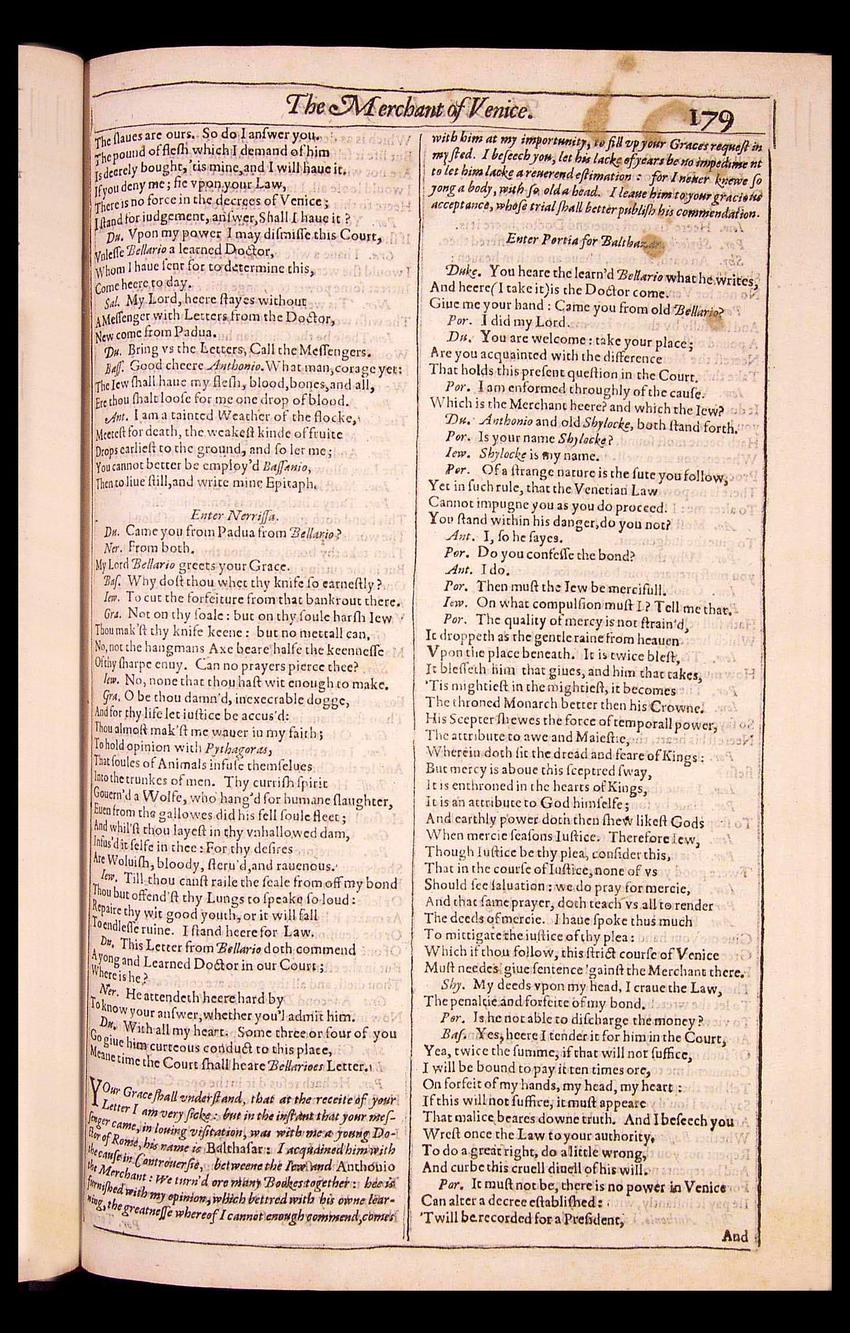 The Merchant of Venice. 179
The slaues are ours. So do I answer you.
The pound of flesh which I demand of him
Is deerely bought, 'tis mine, and I will haue it.
If you deny me; fie vpon your Law,
There is no force in the decrees of Venice;
I stand for iudgement, answer, Shall I haue it?
Du. Vpon my power I may dismisse this Court,
Vnlesse Bellario a learned Doctor,
Whom I haue sent for to determine this,
Come heere to day.
Sal. My Lord, heere stayes without
A Messenger with Letters from the Doctor,
New come from Padua.
Du. Bring vs the Letters, Call the Messengers.
Bass. Good cheere Anthonio. What man, corage yet:
The Iew shall haue my flesh, blood, bones, and all,
Ere thou shalt loose for me one drop of blood.
Ant. I am a tainted Weather of the flocke,
Meetest for death, the weakest kinde of fruite
Drops earliest to the ground, and so let me;
You cannot better be employ'd Bassanio,
Then to liue still, and write mine Epitaph.
Enter Nerrissa.
Du. Came you from Padua from Bellario?
Ner. From both.
My Lord Bellario greets your Grace.
Bas. Why dost thou whet thy knife so earnestly?
Iew. To cut the forfeiture from that bankrout there.
Gra. Not on thy soale: but on thy soule harsh Iew
Thou mak'st thy knife keene: but no mettall can,
No, not the hangmans Axe beare halfe the keennesse
Of thy sharpe enuy. Can no prayers pierce thee?
Iew. No, none that thou hast wit enough to make.
Gra. O be thou damn'd, inexecrable dogge,
And for thy life let iustice be accus'd:
Thou almost mak'st me wauer in my faith;
To hold opinion with Pythagoras,
That soules of Animals infuse themselues
Into the trunkes of men. Thy currish spirit
Gouern'd a Wolfe, who hang'd for humane slaughter,
Euen from the gallowes did his fell soule fleet;
And whil'st thou layest in thy vnhallowed dam,
Infus'd it selfe in thee: For thy desires
Are Woluish, bloody, steru'd, and rauenous.
Iew. Till thou canst raile the seale from off my bond
Thou but offend'st thy Lungs to speake so loud:
Repaire thy wit good youth, or it will fall
To endlesse ruine. I stand heere for Law.
Du. This Letter from Bellario doth commend
A yong and Learned Doctor in our Court;
Where is he?
Ner. He attendeth heere hard by
To know your answer, whether you'l admit him.
Du. With all my heart. Some three or four of you
Go giue him curteous conduct to this place,
Meane time the Court shall heare Bellarioes Letter.
YOur Grace shall vnderstand, that at the receite of your
Letter I am very sicke: but in the instant that your mes-
senger came, in louing visitation, was with me a young Do-
ctor of Rome, his name is Balthasar: I acquained him with
the cause in Controuersie, betweene the Iew and Anthonio
the Merchant: We turn'd ore many Bookes together: hee is
furnished with my opinion, which bettred with his owne lear-
ning, the greatnesse whereof I cannot enough commend, comes
with him at my importunity, to fill vp your Graces request in
my sted. I beseech you, let his lacke of years be no impediment
to let him lacke a reuerend estimation: for I neuer knewe so
yong a body, with so old a head. I leaue him to your gracious
acceptance, whose trial shall better publish his commendation.
Enter Portia for Balthazar.
Duke. You heare the learn'd Bellario what he writes,
And heere (I take it) is the Doctor come.
Giue me your hand: Came you from old Bellario?
Por. I did my Lord.
Du. You are welcome: take your place;
Are you acquainted with the difference
That holds this present question in the Court.
Por. I am enformed throughly of the cause.
Which is the Merchant heere? and which the Iew?
Du. Anthonio and old Shylocke, both stand forth.
Por. Is your name Shylocke?
Iew. Shylocke is my name.
Por. Of a strange nature is the sute you follow,
Yet in such rule, that the Venetian Law
Cannot impugne you as you do proceed.
You stand within his danger, do you not?
Ant. I, so he sayes.
Por. Do you confesse the bond?
Ant. I do.
Por. Then must the Iew be mercifull.
Iew. On what compulsion must I? Tell me that.
Por. The quality of mercy is not strain'd,
It droppeth as the gentle raine from heauen
Vpon the place beneath. It is twice blest,
It blesseth him that giues, and him that takes,
'Tis mightiest in the mightiest, it becomes
The throned Monarch better then his Crowne.
His Scepter shewes the force of temporall power,
The attribute to awe and Maiestie,
Wherein doth sit the dread and feare of Kings:
But mercy is aboue this sceptred sway,
It is enthroned in the hearts of Kings,
It is an attribute to God himselfe;
And earthly power doth then shew likest Gods
When mercie seasons Iustice. Therefore Iew,
Though Iustice be thy plea, consider this,
That in the course of Iustice, none of vs
Should see saluation: we do pray for mercie,
And that same prayer, doth teach vs all to render
The deeds of mercie. I haue spoke thus much
To mittigate the iustice of thy plea:
Which if thou follow, this strict course of Venice
Must needes giue sentence 'gainst the Merchant there.
Shy. My deeds vpon my head, I craue the Law,
The penaltie and forfeite of my bond.
Por. Is he not able to discharge the money?
Bas. Yes, heere I tender it for him in the Court,
Yea, twice the summe, if that will not suffice,
I will be bound to pay it ten times ore,
On forfeit of my hands, my head, my heart:
If this will not suffice, it must appeare
That malice beares downe truth. And I beseech you
Wrest once the Law to your authority,
To do a great right, do a little wrong,
And curbe this cruell diuell of his will.
Por. It must not be, there is no power in Venice
Can alter a decree established:
'Twill be recorded for a President,
And